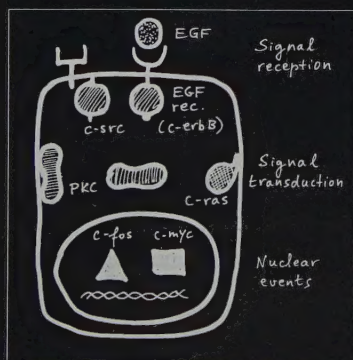 EGF
Signal
reception
EGF
rec.
c-src
(c-erbB)
PKC
Signal
transduction
c-ras
c-fos
c-myc
Nuclear
events